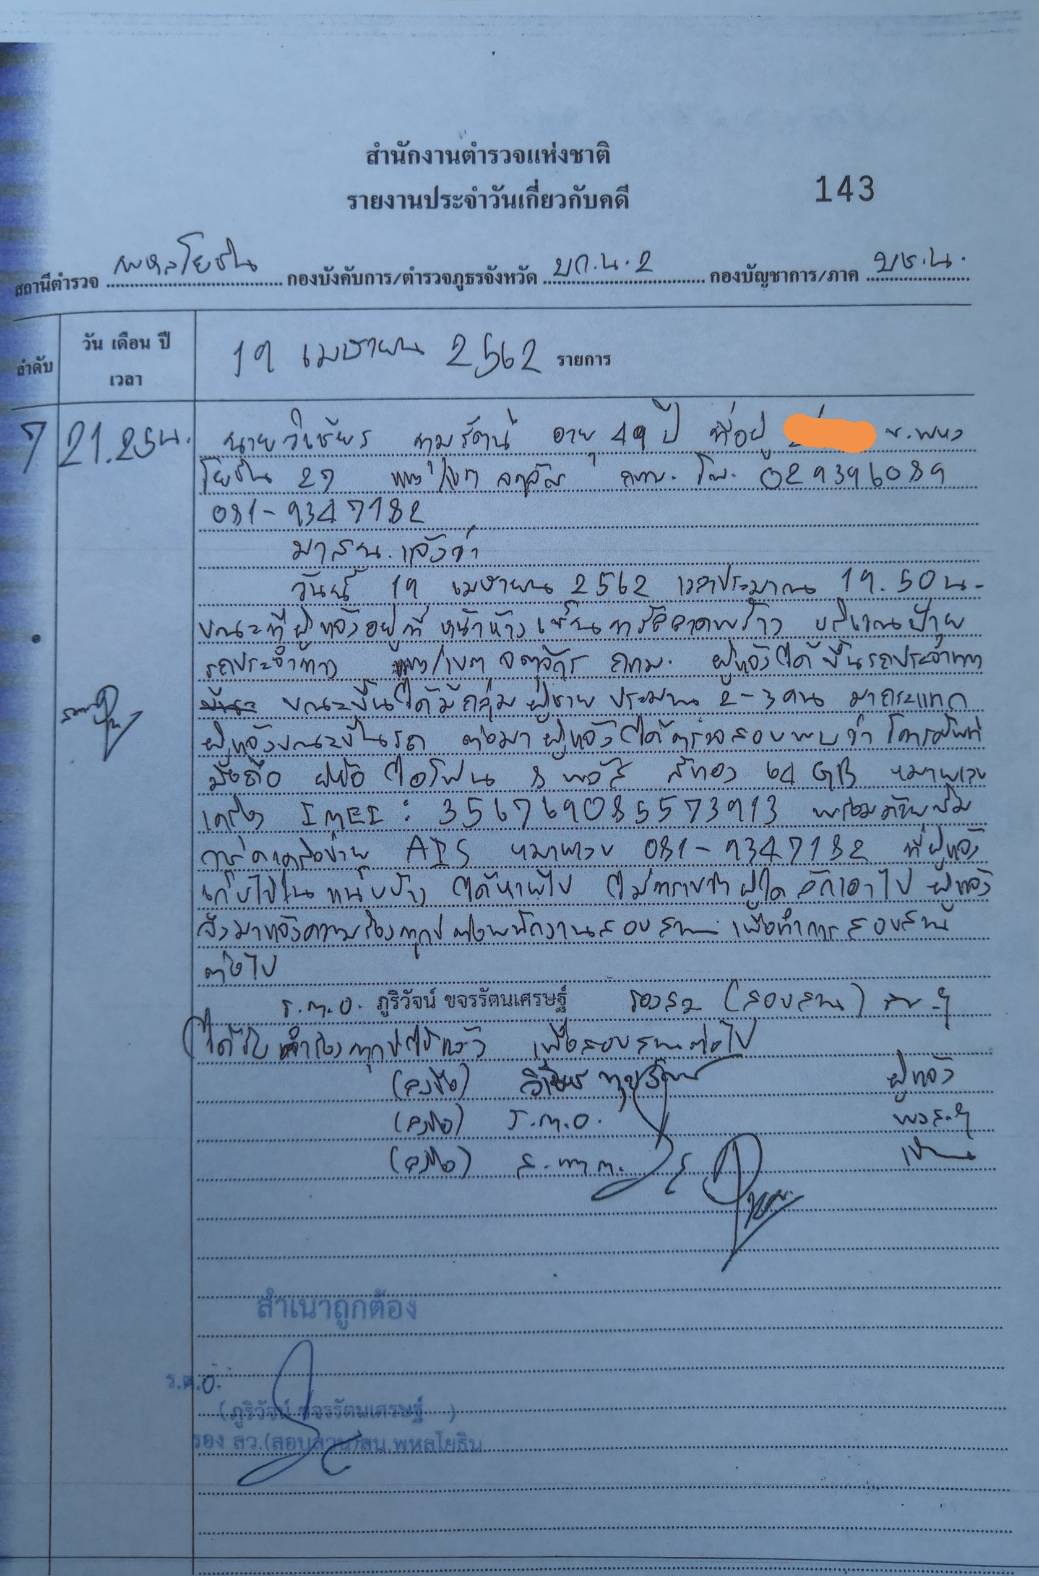 สำนักงานตำรวจแห่งชาติ
รายงานประจำวันเกี่ยวกับคดี
143
สถานีตำรวจ พหลโยธิน กองบังคับการ/ตำรวจภูธรจังหวัด บก.น.2 กองบัญชาการ/ภาค บช.น.
ลำดับ วัน เดือน ปี เวลา 19 เมษายน 2562 รายการ
7 21.25น. นายวิเชียร อายุ 49 ปี ที่อยู่ ซ.พหล
โยธิน 27 แขวง/เขต จตุจักร กทม. โทร. 029396089
081-9347182
มาสน.แจ้งว่า
วันนี้ 19 เมษายน 2562 เวลาประมาณ 19.50น.
ขณะที่ผู้แจ้งอยู่ที่ หน้าห้างเซ็นทรัลลาดพร้าว บริเวณป้าย
รถประจำทาง แขวง/เขต จตุจักร กทม. ผู้แจ้งได้ขึ้นรถประจำทาง
ขณะขึ้นได้มีกลุ่มผู้ชายประมาณ 2-3 คน มากระแทก
ผู้แจ้งขณะขึ้นรถ ต่อมาผู้แจ้งได้ตรวจสอบพบว่า โทรศัพท์
มือถือ ยี่ห้อ ไอโฟน 8 พลัส สีทอง 64 GB หมายเลข
เครื่อง IMEI : 356769085573913 พร้อมด้วยซิม
การ์ดเครือข่าย AIS หมายเลข 081-9347182 ที่ผู้แจ้ง
เก็บไว้ใน ได้หายไป ไม่ทราบว่าผู้ใดลักเอาไป ผู้แจ้ง
จึงมาแจ้งความร้องทุกข์ต่อพนักงานสอบสวน เพื่อทำการสอบสวน
ต่อไป
ร.ต.อ. ภูริวัจน์ ขจรรัตนเศรษฐ์ รองสว.(สอบสวน) สน.ฯ
ได้รับคำร้องทุกข์ไว้แล้ว เพื่อสอบสวนต่อไป
(ลงชื่อ) วิเชียร ผู้แจ้ง
(ลงชื่อ) ร.ต.อ. พงส.ฯ
(ลงชื่อ)
สำเนาถูกต้อง
ร.ต.อ.
( ภูริวัจน์ ขจรรัตนเศรษฐ์ )
รอง สว.(สอบสวน)สน.พหลโยธิน